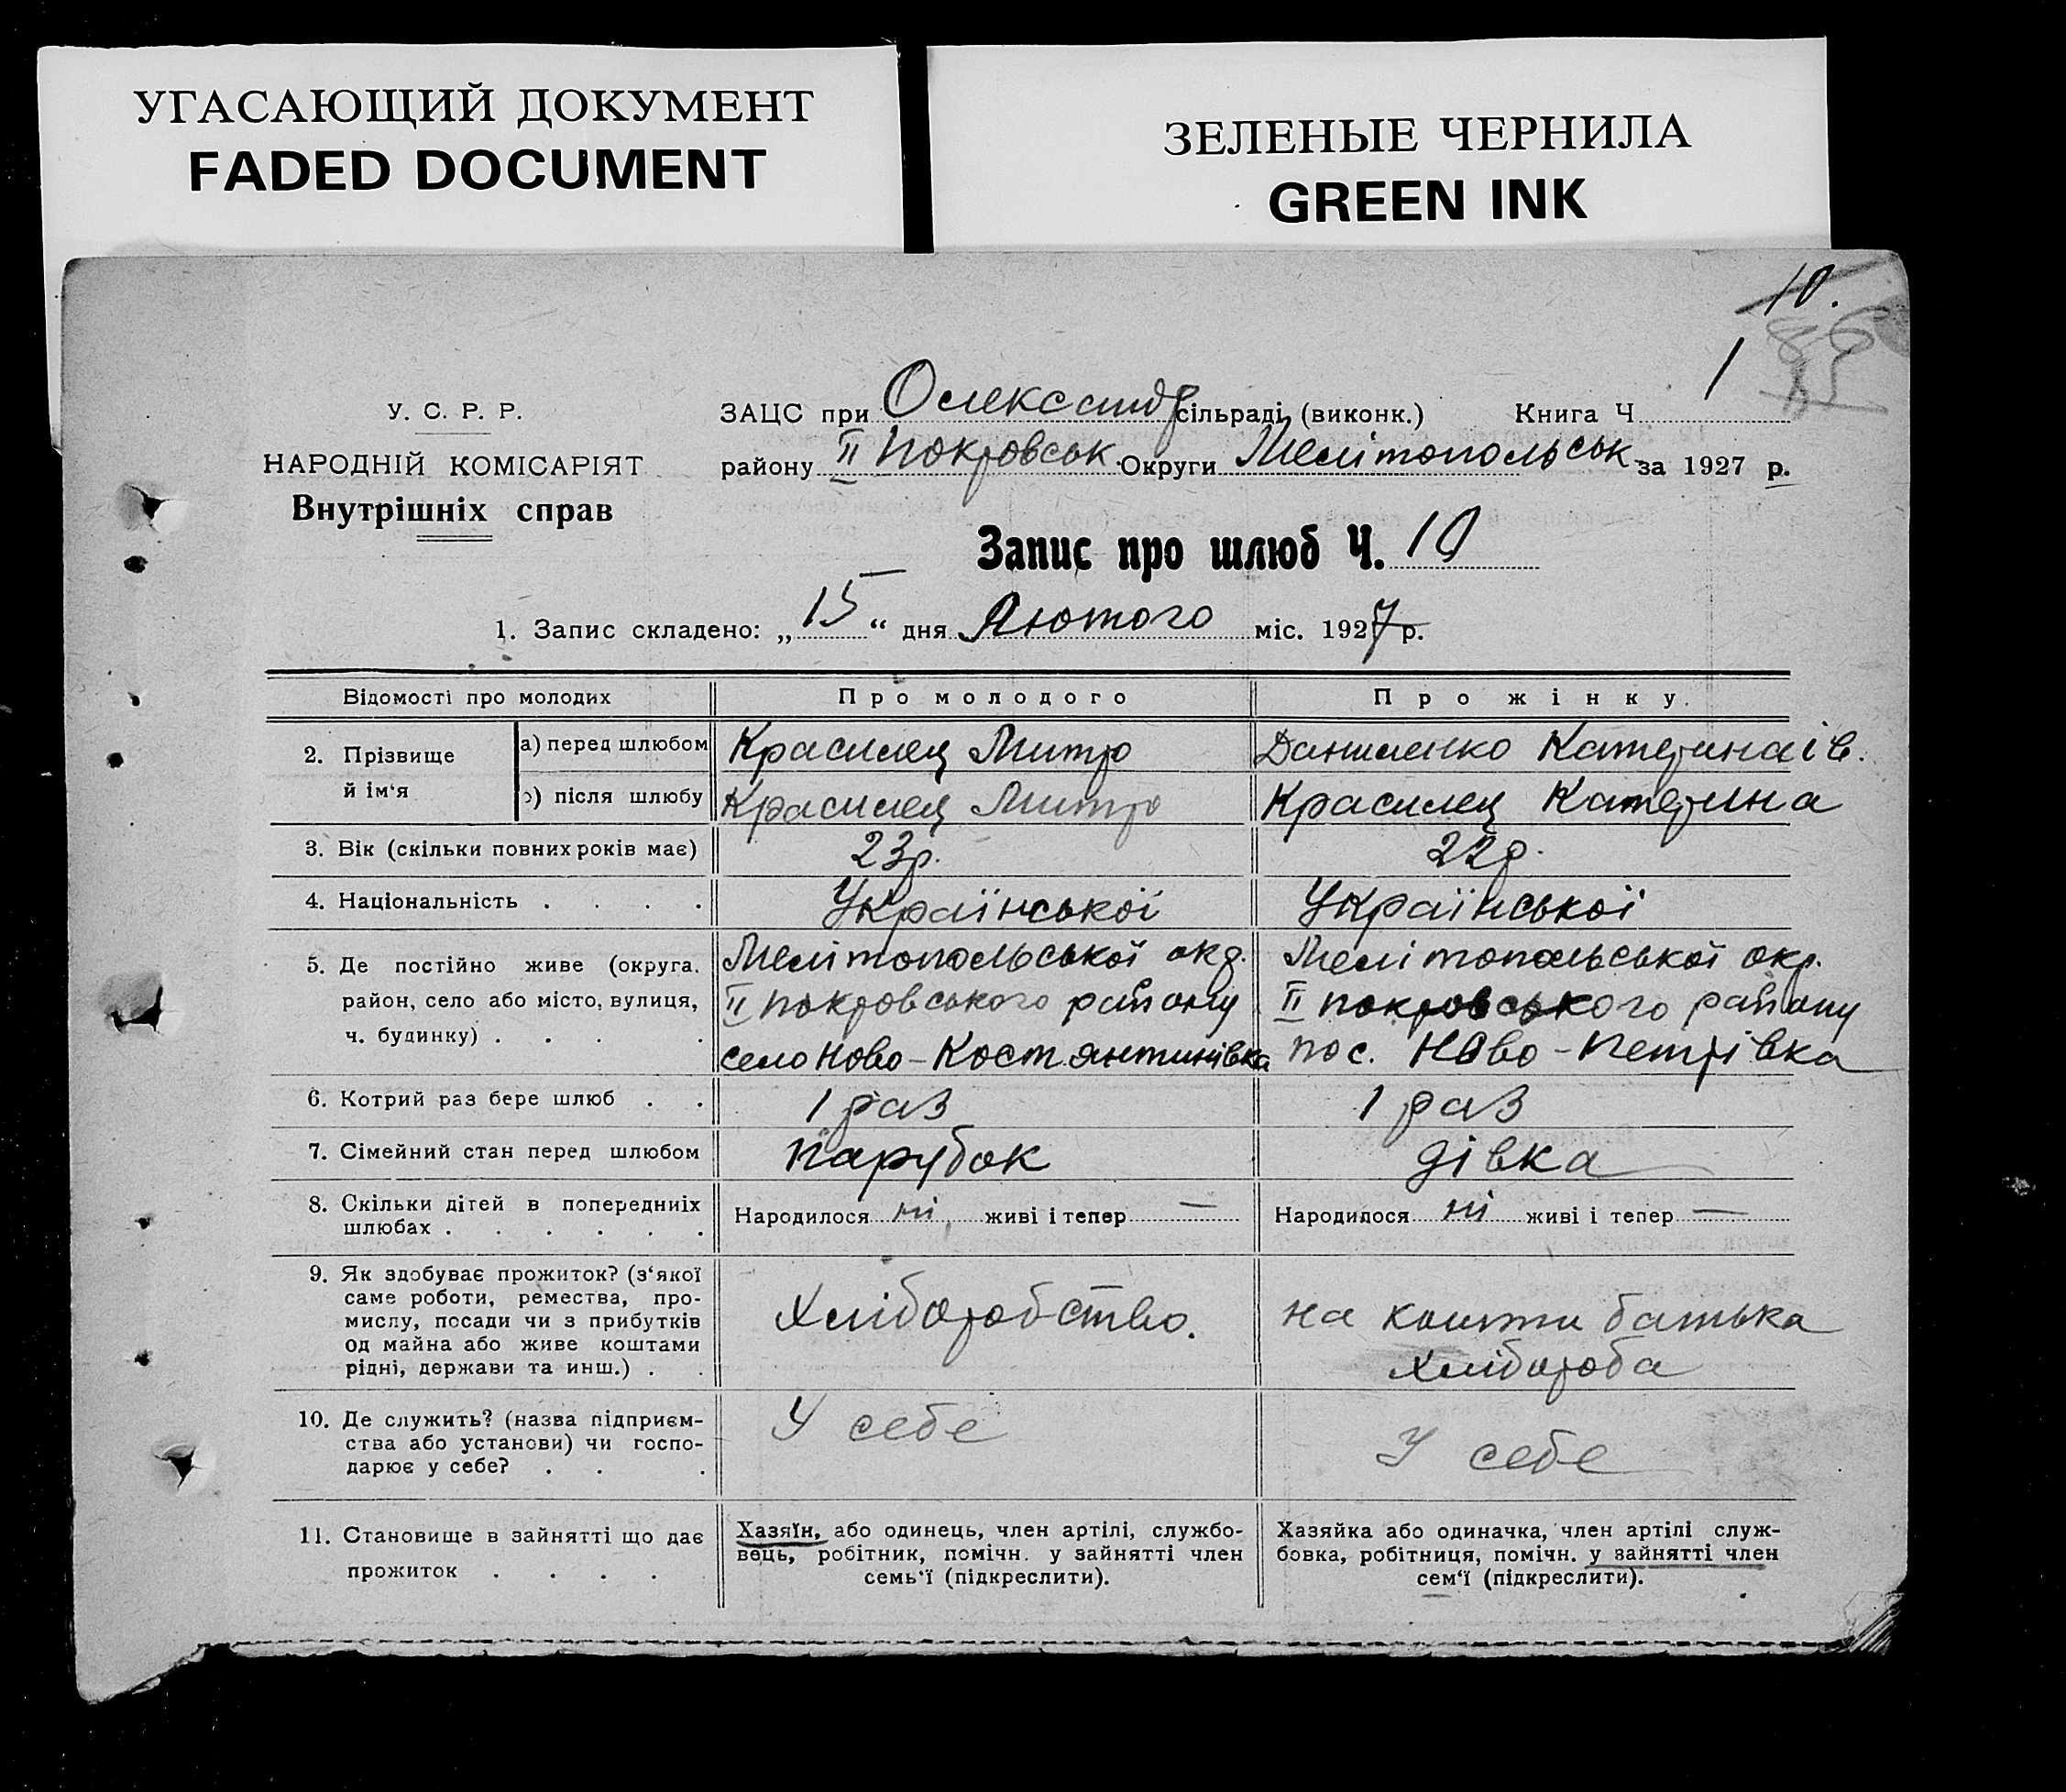 УГАСАЮЩИЙ ДОКУМЕНТ
FADED DOCUMENT
ЗЕЛЕНЫЕ ЧЕРНИЛА
GREEN INK
10.
86
У. С. Р. Р.
НАРОДНІЙ КОМІСАРІЯТ
Внутрішніх справ
ЗАЦС при Олександр сільраді (виконк.) Книга Ч 1
району II Покровськ Округи Мелітопольськ за 1927 р.
Запис про шлюб Ч. 10
1. Запис складено: „ 15 “ дня Лютого міс. 1927 р.
Відомості про молодих Про молодого Про жінку.
2. Прізвище й ім‘я
а) перед шлюбом Красилец Митро Даниленко Катерина ів.
б) після шлюбу Красилец Митро Красилец Катерина
3. Вік (скільки повних років має) 23р. 22р.
4. Національність . . . . Української Української
5. Де постійно живе (округа, район, село або місто, вулиця, ч. будинку) . . . .
Мелітопольської окр.
II Покровського району
село Ново-Костянтинівка
Мелітопольської окр.
II Покровського району
пос. Ново-Петрівка
6. Котрий раз бере шлюб . . 1 раз 1 раз
7. Сімейний стан перед шлюбом парубок дівка
8. Скільки дітей в попередниіх шлюбах . . . . . .
Народилося ні живі і тепер —
Народилося ні живі і тепер —
9. Як здобуває прожиток? (з‘якої
саме роботи, ремества, про-
мислу, посади чи з прибутків
од майна або живе коштами
рідні, держави та инш.) . .
Хліборобство.
на кошти батька
хлібороба
10. Де служить? (назва підприєм-
ства або установи) чи госпо-
дарює у себе? . . .
У себе
У себе
11. Становище в зайнятті що дає
прожиток . . . .
Хазяїн, або одинець, член артілі, службо-
вець, робітник, помічн. у зайнятті член
семь‘ї (підкреслити).
Хазяйка або одиначка, член артілі служ-
бовка, робітниця, помічн. у зайнятті член
сем‘ї (підкреслити).